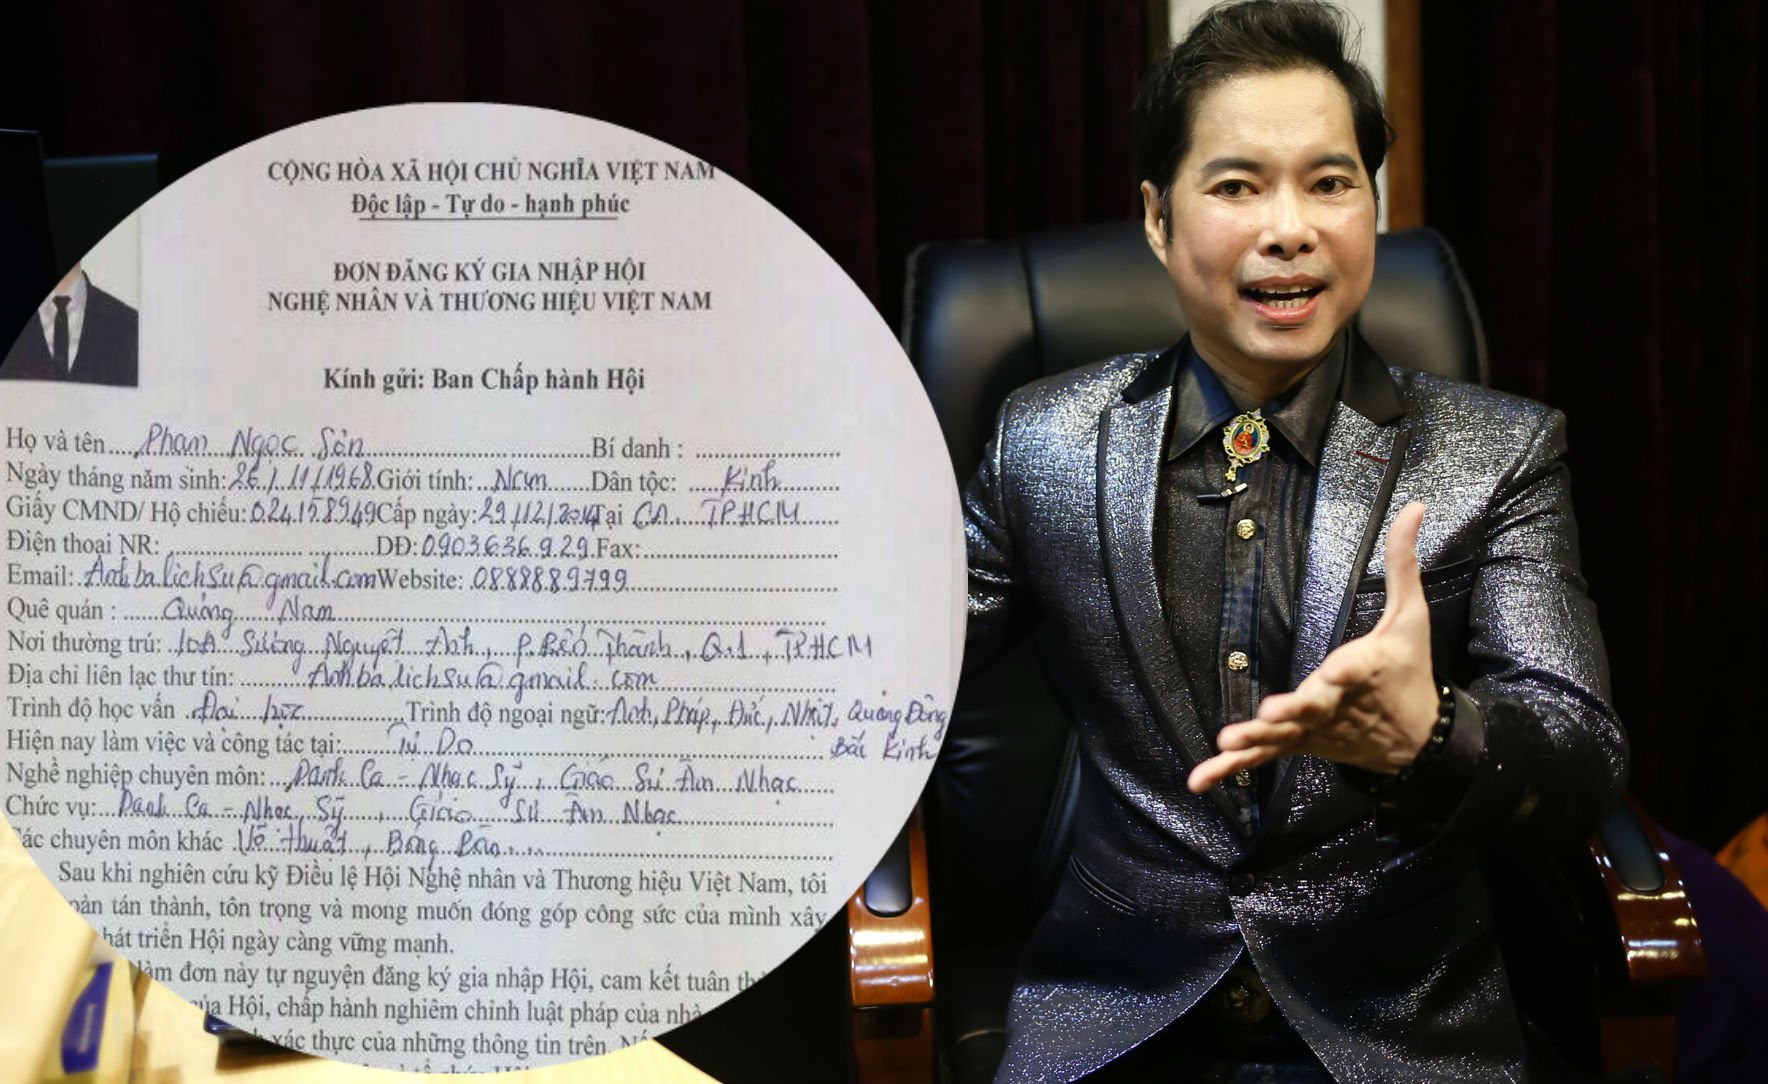 CỘNG HÒA XÃ HỘI CHỦ NGHĨA VIỆT NAM
Độc lập - Tự do - hạnh phúc
ĐƠN ĐĂNG KÝ GIA NHẬP HỘI
NGHỆ NHÂN VÀ THƯƠNG HIỆU VIỆT NAM
Kính gửi: Ban Chấp hành Hội
Họ và tên Phạm Ngọc Sơn Bí danh :
Ngày tháng năm sinh: 26/11/1968 Giới tính: Nam Dân tộc: Kinh
Giấy CMND/ Hộ chiếu: 024158949 Cấp ngày: 29/12/2014 Tại CA TPHCM
Điện thoại NR: DĐ: 0903636929 Fax:
Email: Anhbalichsu@gmail.com Website: 0888889799
Quê quán : Quảng Nam
Nơi thường trú: 10A Sương Nguyệt Anh, P. Bến Thành, Q.1, TPHCM
Địa chỉ liên lạc thư tín: Anhbalichsu@gmail.com
Trình độ học vấn Đại học Trình độ ngoại ngữ: Anh, Pháp, Đức, Nhật, Quảng Đông
Hiện nay làm việc và công tác tại: Tự Do Bắc Kinh
Nghề nghiệp chuyên môn: Danh Ca - Nhạc Sỹ, Giáo Sư Âm Nhạc
Chức vụ: Danh Ca - Nhạc Sỹ, Giáo Sư Âm Nhạc
ác chuyên môn khác Võ thuật, Bóng Bàn
Sau khi nghiên cứu kỹ Điều lệ Hội Nghệ nhân và Thương hiệu Việt Nam, tôi
oàn tán thành, tôn trọng và mong muốn đóng góp công sức của mình xây
hát triển Hội ngày càng vững mạnh.
làm đơn này tự nguyện đăng ký gia nhập Hội, cam kết tuân th
ủa Hội, chấp hành nghiêm chỉnh luật pháp của nhà
xác thực của những thông tin trên.